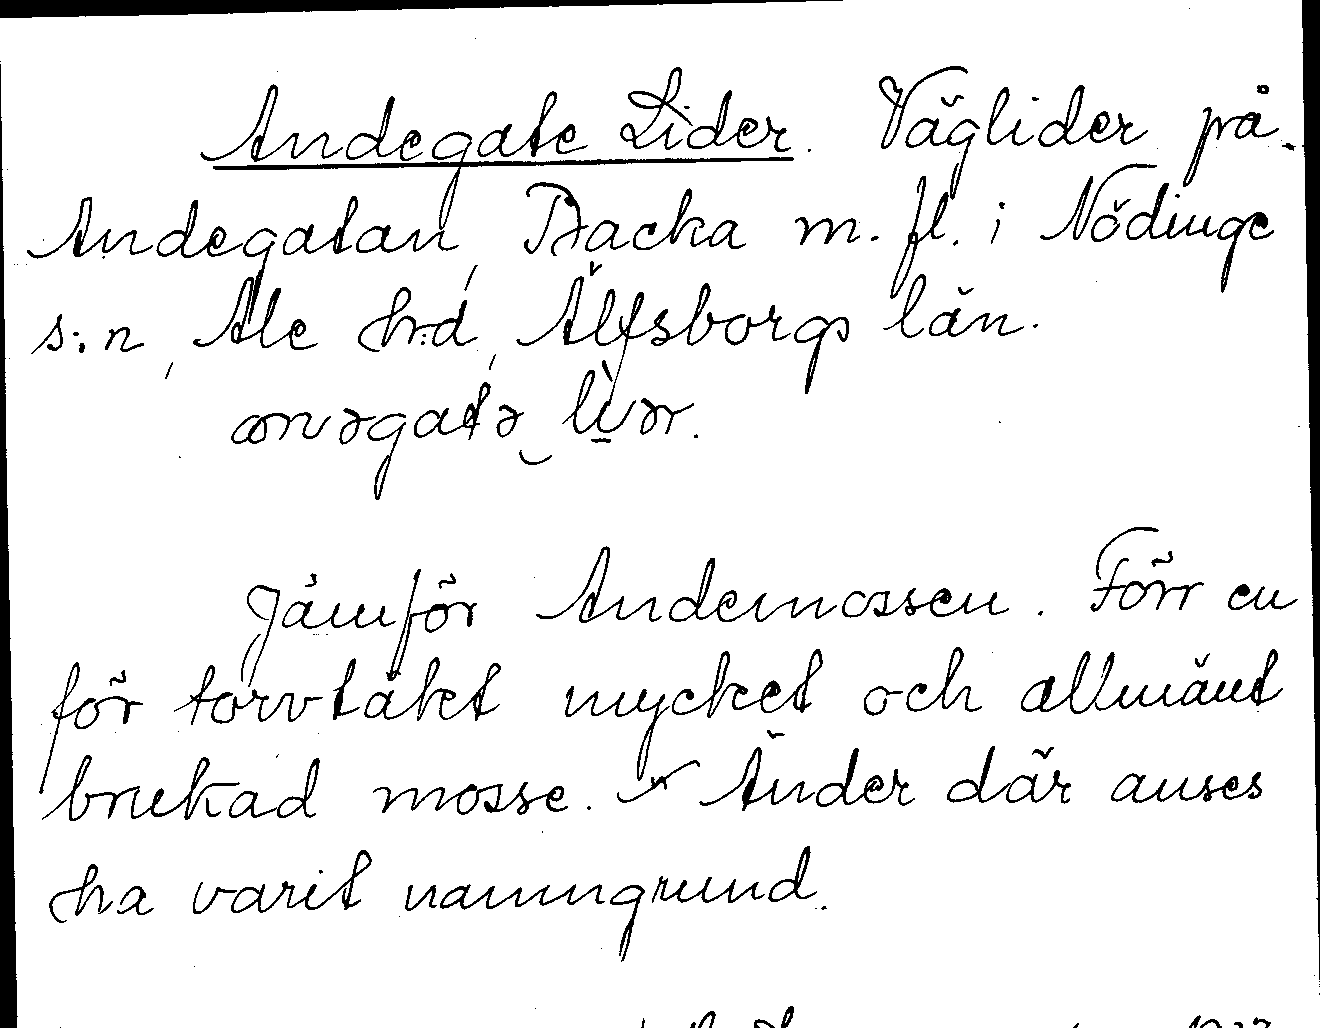 Andegate Lider. Väglider på
Andegatan, Backa m. fl. i Nödinge
s:n, Ale h:d, Älfsborgs län.
anəgatə liər.
Jämför Andemossen. Förr en
för torvtäkt mycket och allmänt
brukad mosse. Änder där anses
ha varit namngrund.